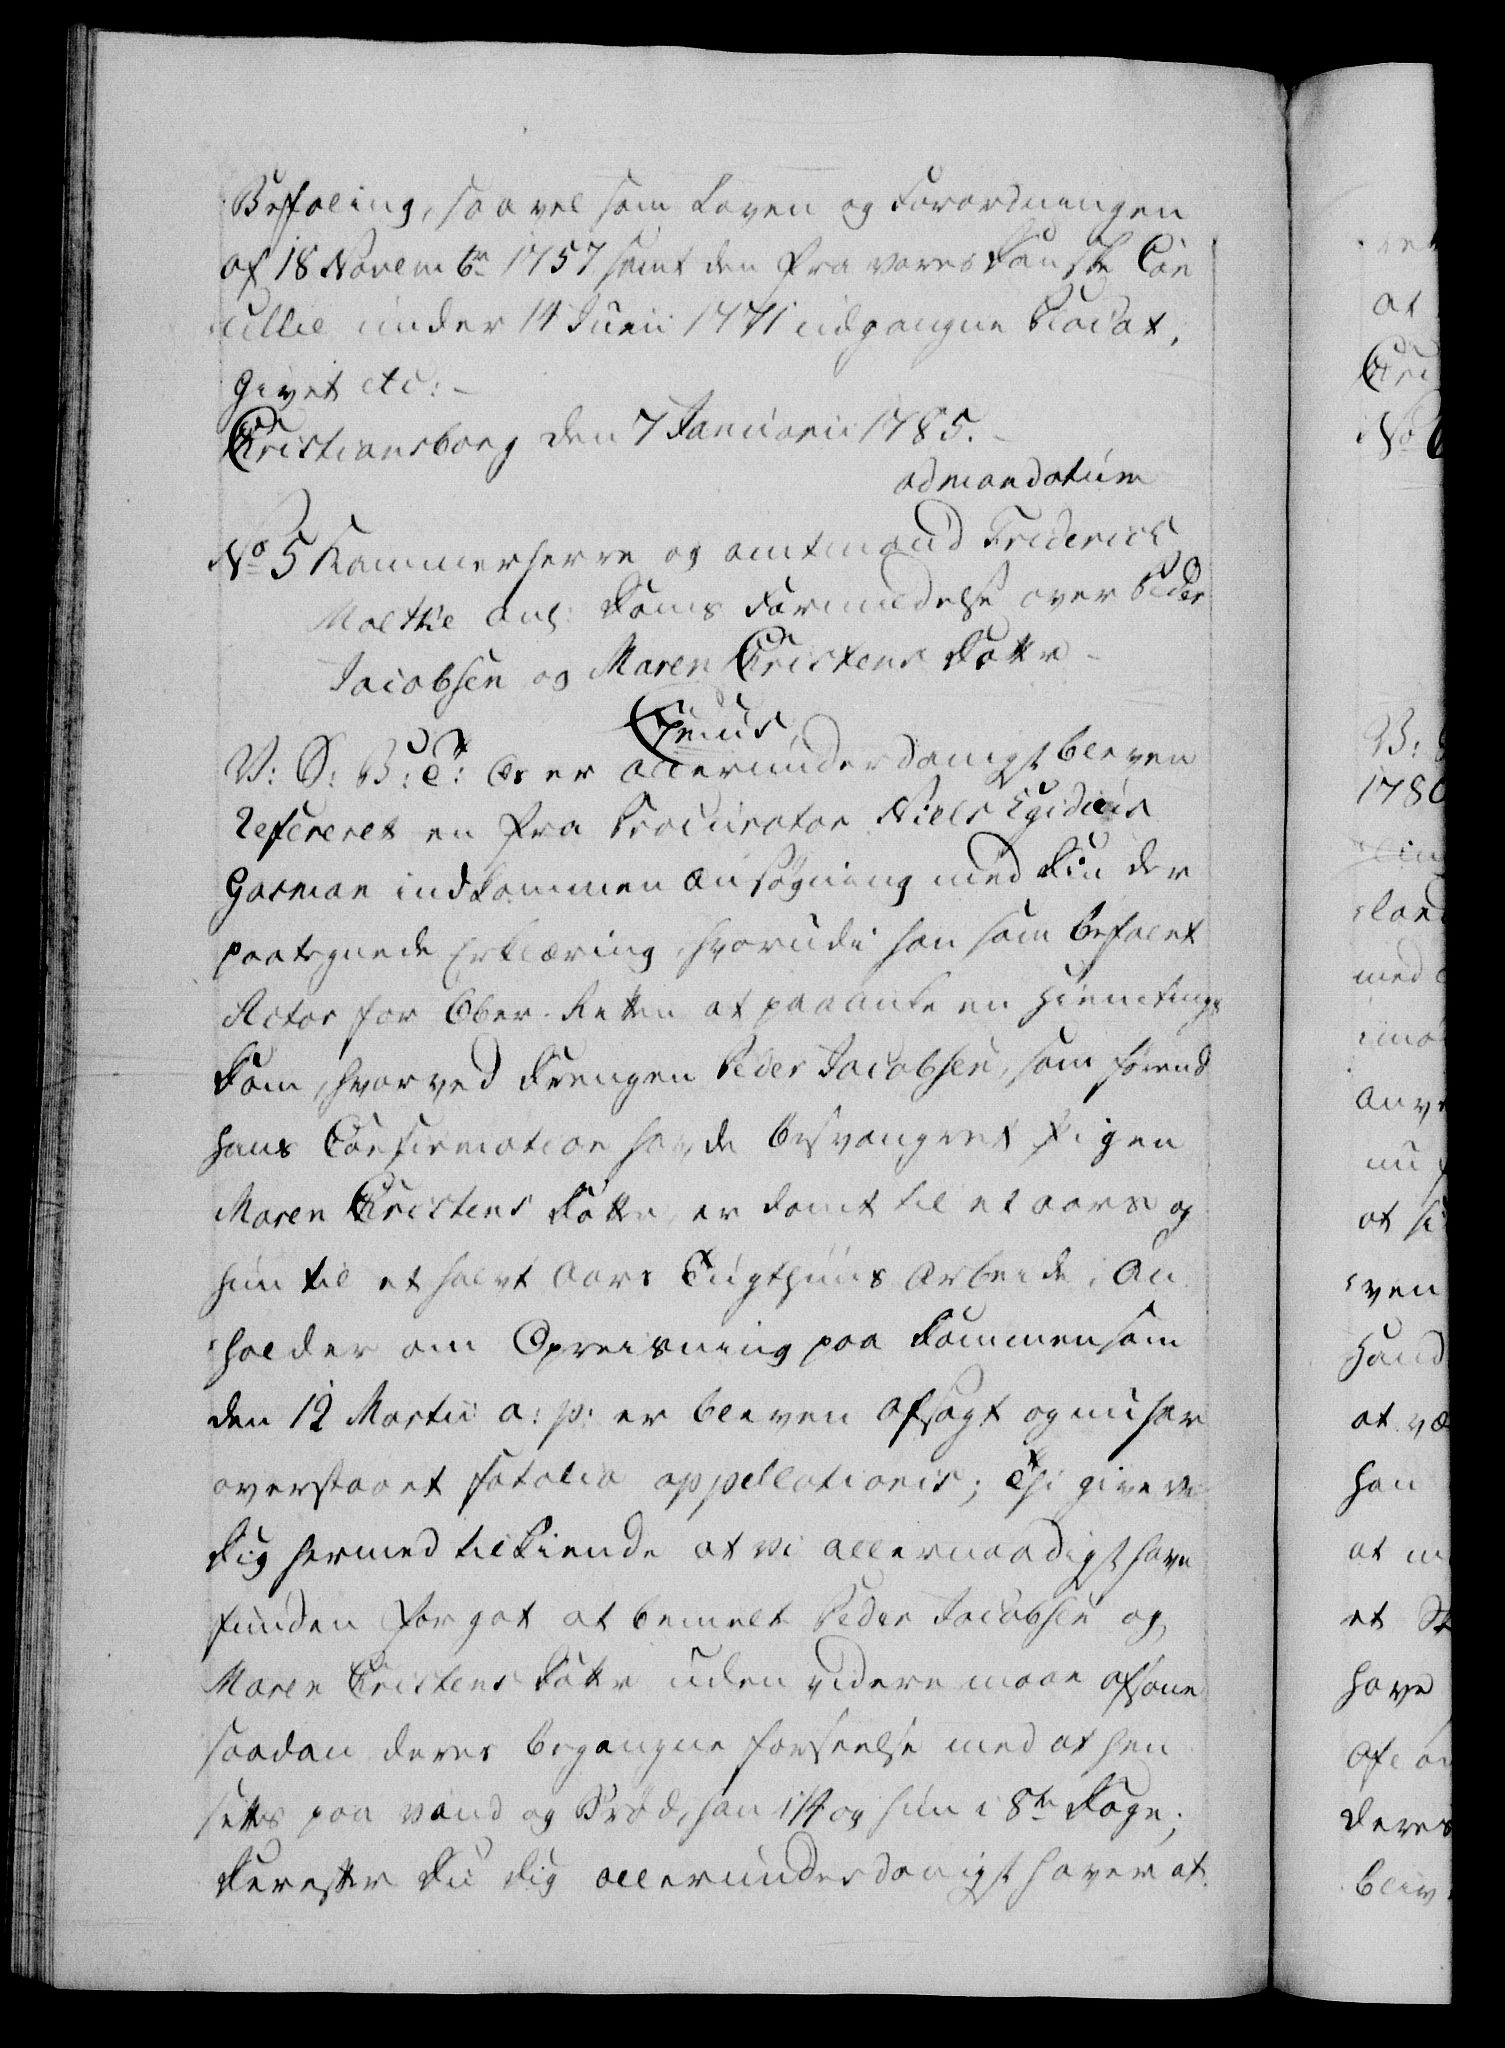 Befaling, saavel som Loven og Forordningen
af 18 Novembr 1757 samt den fra vores Danske Can
cellie under 14 Junii 1771 udgangne Placat,
Givet etc: -
Christiansborg den 7 Januarii 1785. -
ad mandatum
No 5 Kammerherre og amtmand Friderich
Moltke anl: Doms Formildelse over Peder
Jacobsen og Maren Christens Datter -
Genus,
V: S: G: T: Os er allerunderdanigst bleven
Refereret en fra Procurator Niels Egidius
Garman indkommen Ansøgning med Din der
paategnede Erklæring, hvorudi han som befalet
Actor for Ober-Retten at paaanke en Hiemtings
Dom, hvorved Drengen Peder Jacobsen, som førend
hans Confirmation havde besvangret Pigen
Maren Christens Datter, er dømt til et aars og
hun til et halvt Aars Tugthuus Arbeide, An
holder om Opreisning paa Dommen som
den 12 Martii a: p: er bleven afsagt og nu har
overstaaet fatalia appellationis; Thi give vi
Dig hermed tilkiende at vi allernaadigst have
funden for got at bemelte Peder Jacobsen og
Maren Christens Datter uden videre maae afsone
saadan deres begangne forseelse med at hen
settes paa vand og Brød, han i 14 og hun i 8te Dage;
Derefter Du Dig allerunderdanigst haver at